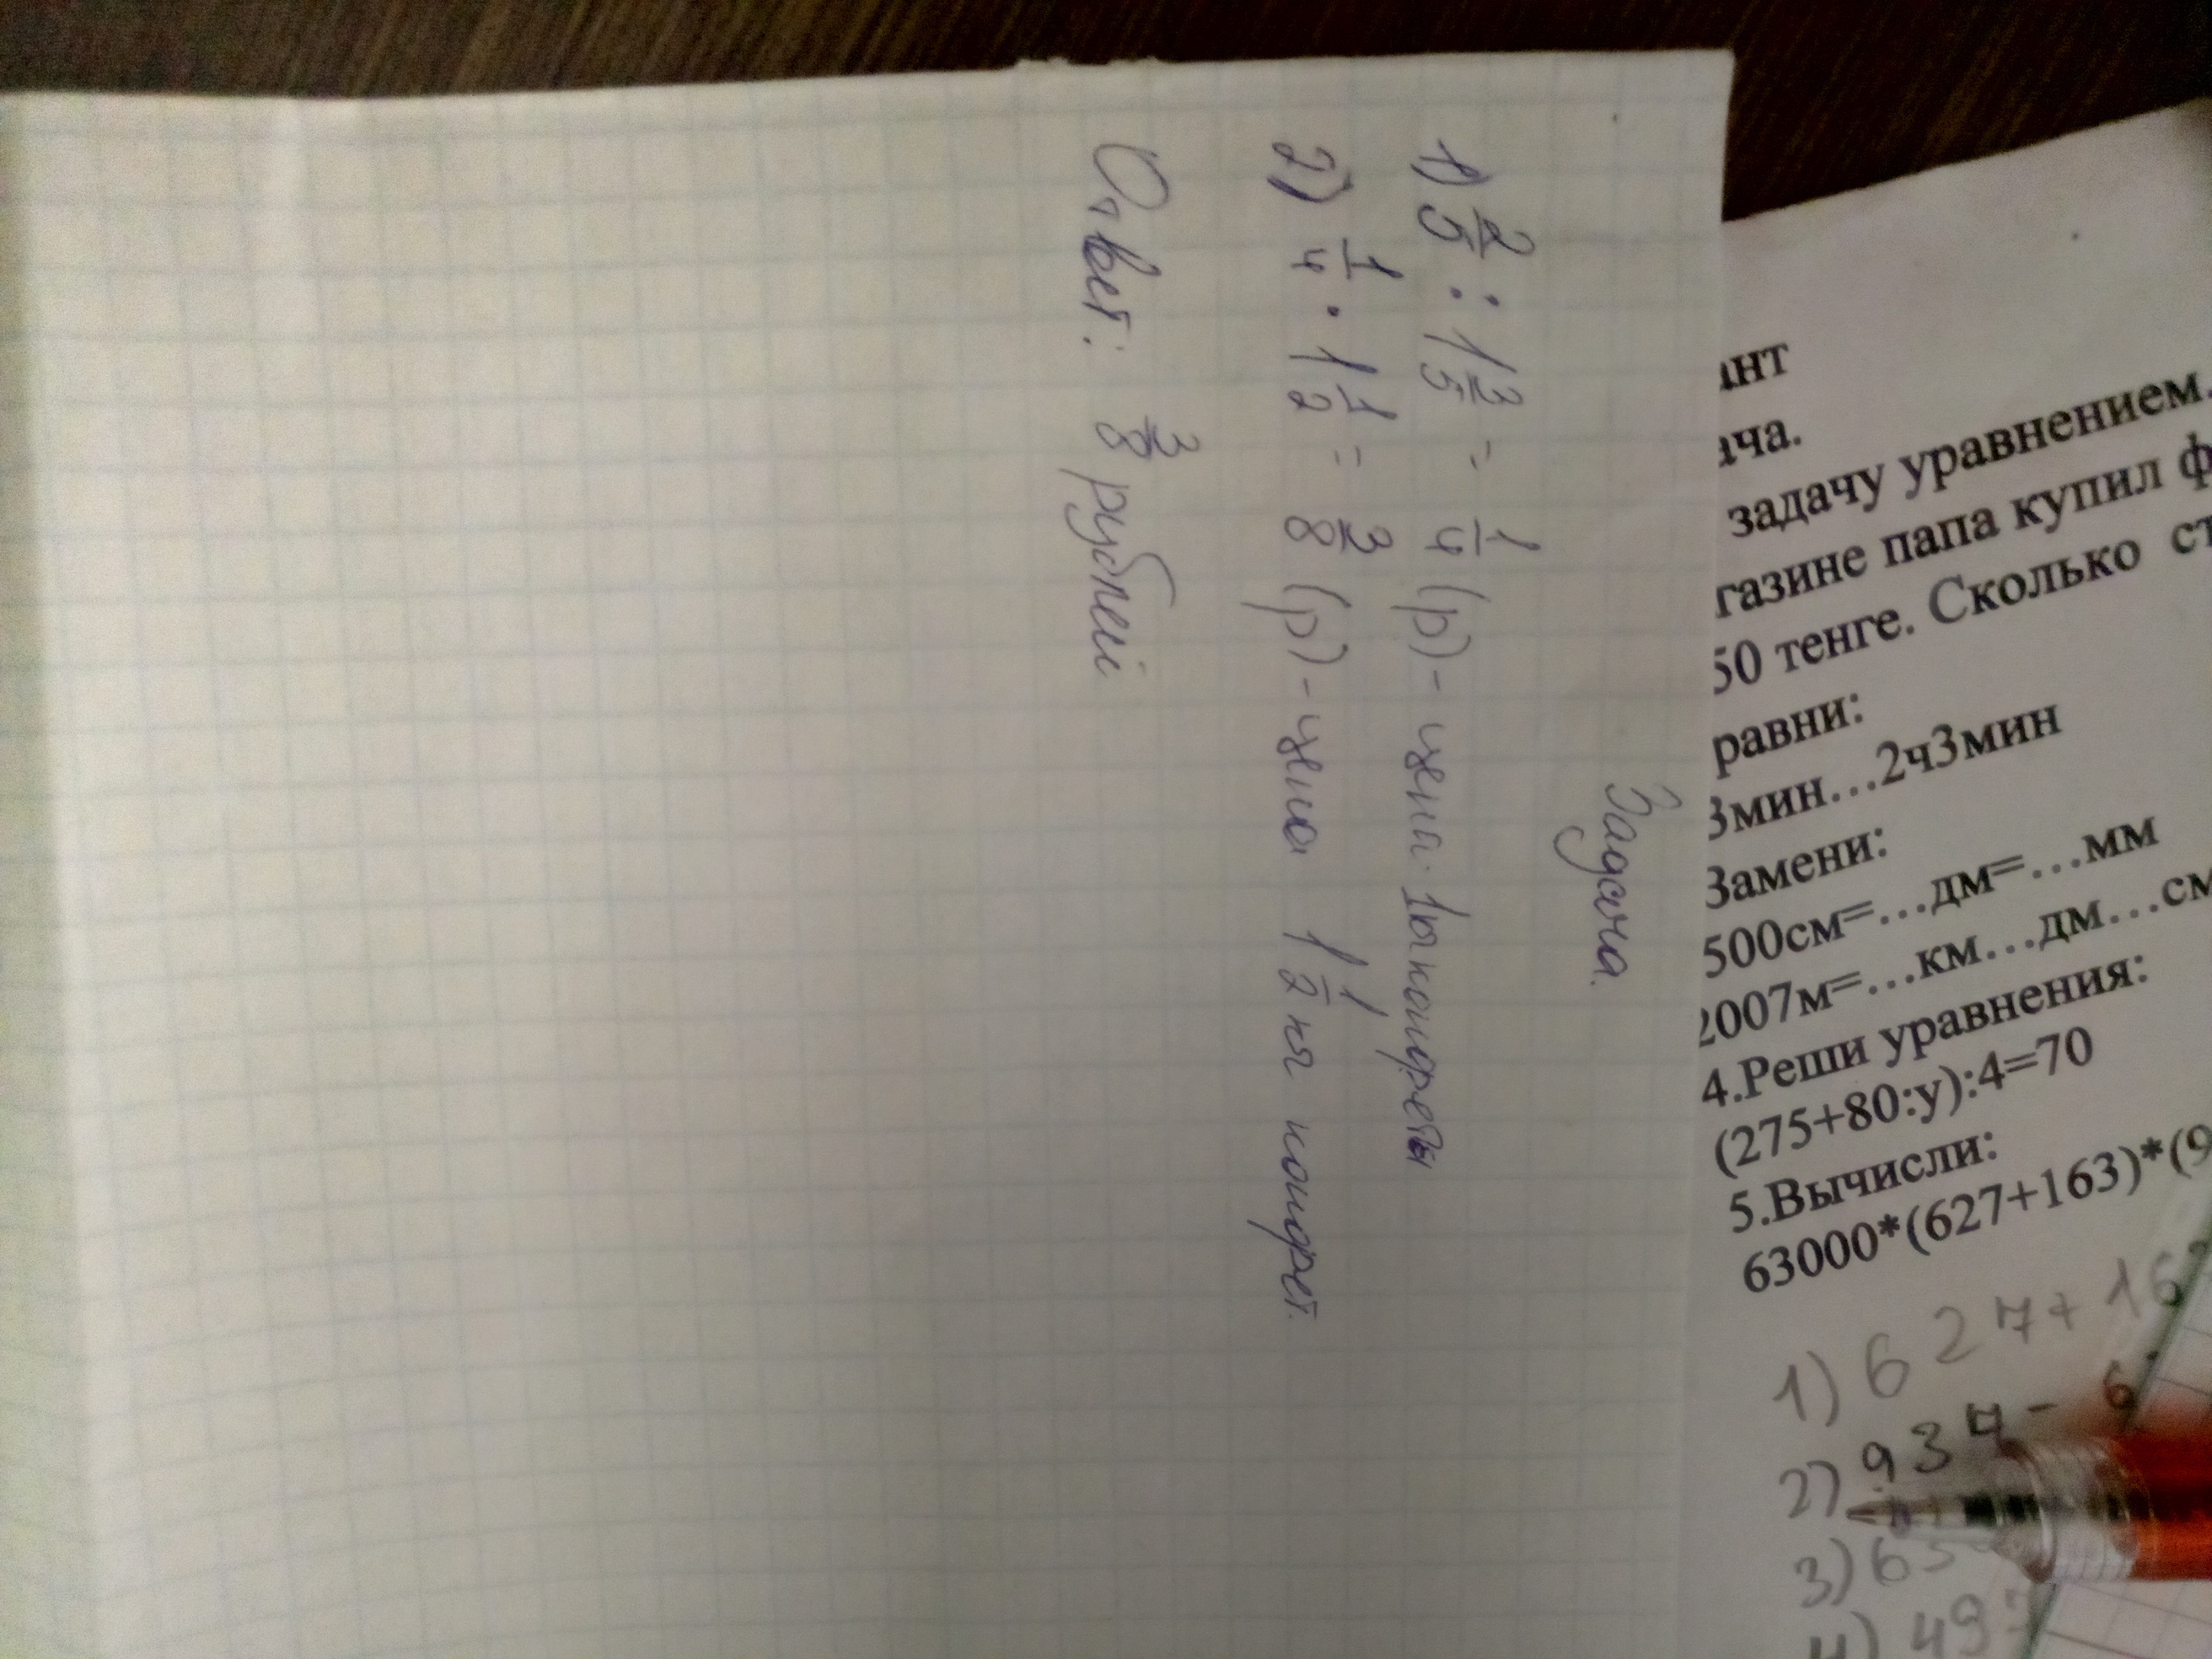 Задача.
1) 2/5 : 1 3/5 = 1/4 (р) - цена 1 конфеты
2) 1/4 · 1 1/2 = 3/8 (р) - цена 1 1/2 кг конфет.
Ответ: 3/8 рублей
ант
ача.
задачу уравнением.
газине папа купил ф
50 тенге. Сколько ст
равни:
3мин…2ч3мин
Замени:
500см=…дм=…мм
2007м=…км…дм…см
4.Реши уравнения:
(275+80:у):4=70
5.Вычисли:
63000*(627+163)*(9
1) 627+16
2) 937- 6
3) 63
4) 497